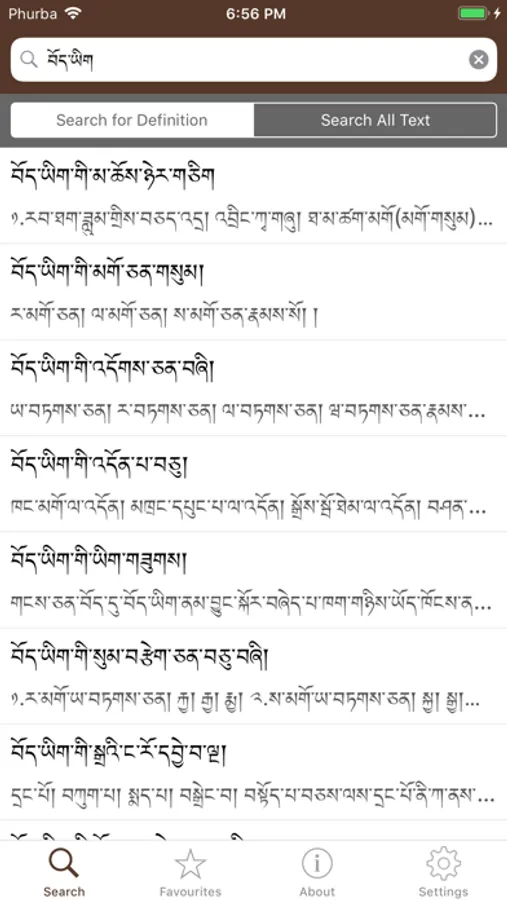 Phurba 6:56 PM
བོད་ཡིག
Search for Definition Search All Text
བོད་ཡིག་གི་མ་ཆོས་ཉེར་གཅིག
༡.རབ་ཐག་ཟླུམ་གྲིས་བཅད་འདྲ། འབྲིང་ཀྭ་གཞུ། ཐ་མ་ཚག་མགོ(མགོ་གསུམ)...
བོད་ཡིག་གི་མགོ་ཅན་གསུམ།
ར་མགོ་ཅན། ལ་མགོ་ཅན། ས་མགོ་ཅན་རྣམས་སོ། །
བོད་ཡིག་གི་འདོགས་ཅན་བཞི།
ཡ་བཏགས་ཅན། ར་བཏགས་ཅན། ལ་བཏགས་ཅན། ཝ་བཏགས་ཅན་རྣམས་...
བོད་ཡིག་གི་འདོན་པ་བཅུ།
ཁང་མགོ་ལ་འདོན། མཁྲང་དཔུང་པ་ལ་འདོན། སྒྲོས་སྔོ་ཐེམ་ལ་འདོན། བཤན་...
བོད་ཡིག་གི་ཡིག་གཟུགས།
གངས་ཅན་བོད་དུ་བོད་ཡིག་ནམ་བྱུང་སྐོར་བཞེད་པ་ཁག་གཉིས་ཡོད་ཁོངས་ན...
བོད་ཡིག་གི་སུམ་བརྩེག་ཅན་བཅུ་བཞི།
༡.ར་མགོ་ཡ་བཏགས་ཅན། རྐྱ། རྒྱ། རྨྱ། ༢.ས་མགོ་ཡ་བཏགས་ཅན། སྐྱ། སྒྱ།...
བོད་ཡིག་གི་སྒྲའི་ང་རོ་དབྱེ་བ་ལྔ།
དྲང་པོ། བཀུག་པ། སྨད་པ། བསྒྲེང་བ། བསྟོད་པ་བཅས་ལས་དྲང་པོ་ནི་ཀ་ནས་...
Search Favourites About Settings